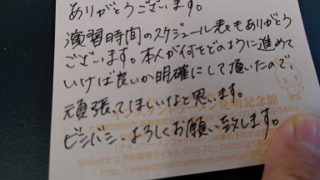 ありがとうございます。
演習時間のスケジュール表もありがとう
ございます。本人が何をどのように進めて
いけば良いか明確にして頂いたので、
頑張ってほしいなと思います。
ビシバシ、よろしくお願い致します。